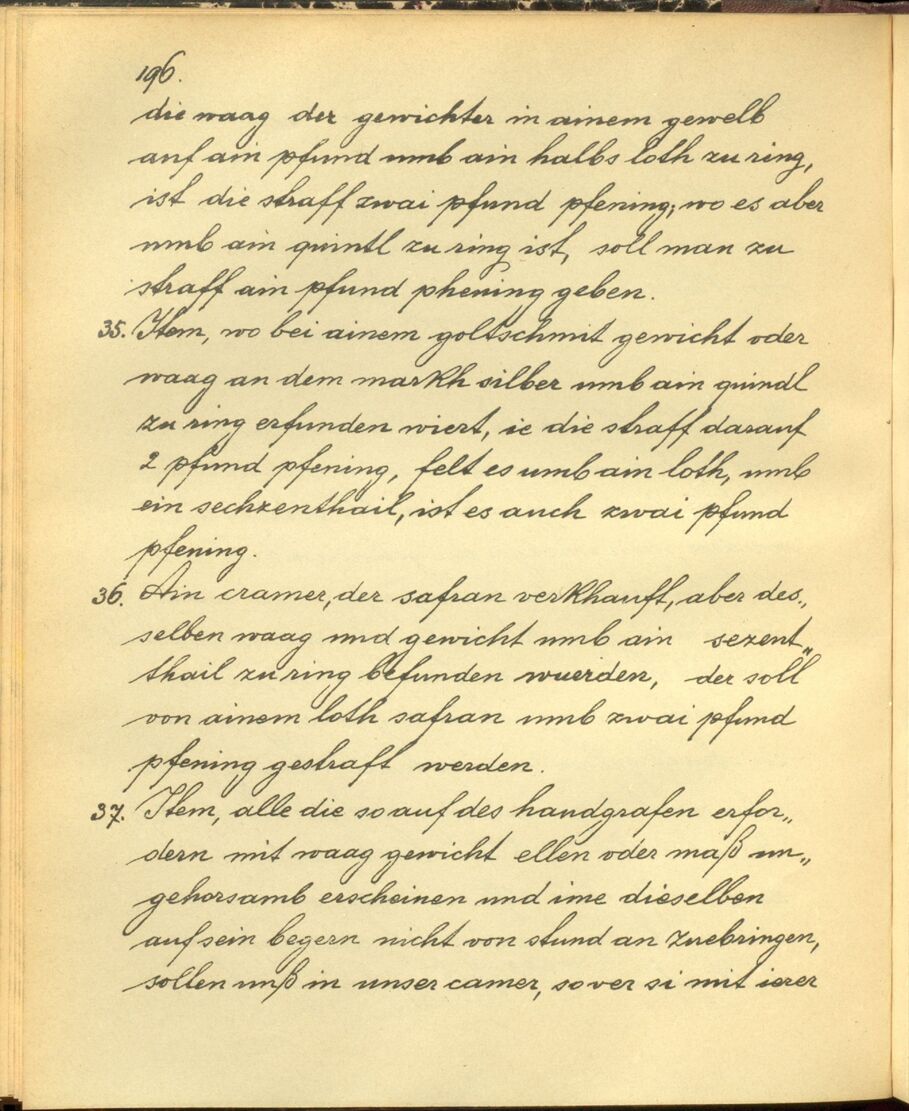 196.
die waag der gewichter in ainem gewelb
auf ain pfund umb ain halbs loth zu ring,
ist die straff zwai pfund pfening; wo es aber
umb ain quintl zu ring ist, soll man zu
straff ain pfund phening geben.
35. Item, wo bei ainem goltschmit gewicht oder
waag an dem markh silber umb ain quindl
zu ring erfunden wiert, ie die straff darauf
2 pfund pfening, felt es umb ain loth, umb
ein sechzenthail, ist es auch zwai pfund
pfening.
36. Ain cramer, der safran verkhauft, aber des„
selben waag und gewicht umb ain sezent„
thail zu ring befunden wuerden, der soll
von ainem loth safran umb zwai pfund
pfening gestraft werden.
37. Item, alle die so auf des handgrafen erfor„
dern mit waag gewicht ellen oder maß un„
gehorsamb erscheinen und ime dieselben
auf sein begern nicht von stund an zuebringen,
sollen unß in unser camer, sover si mit ierer